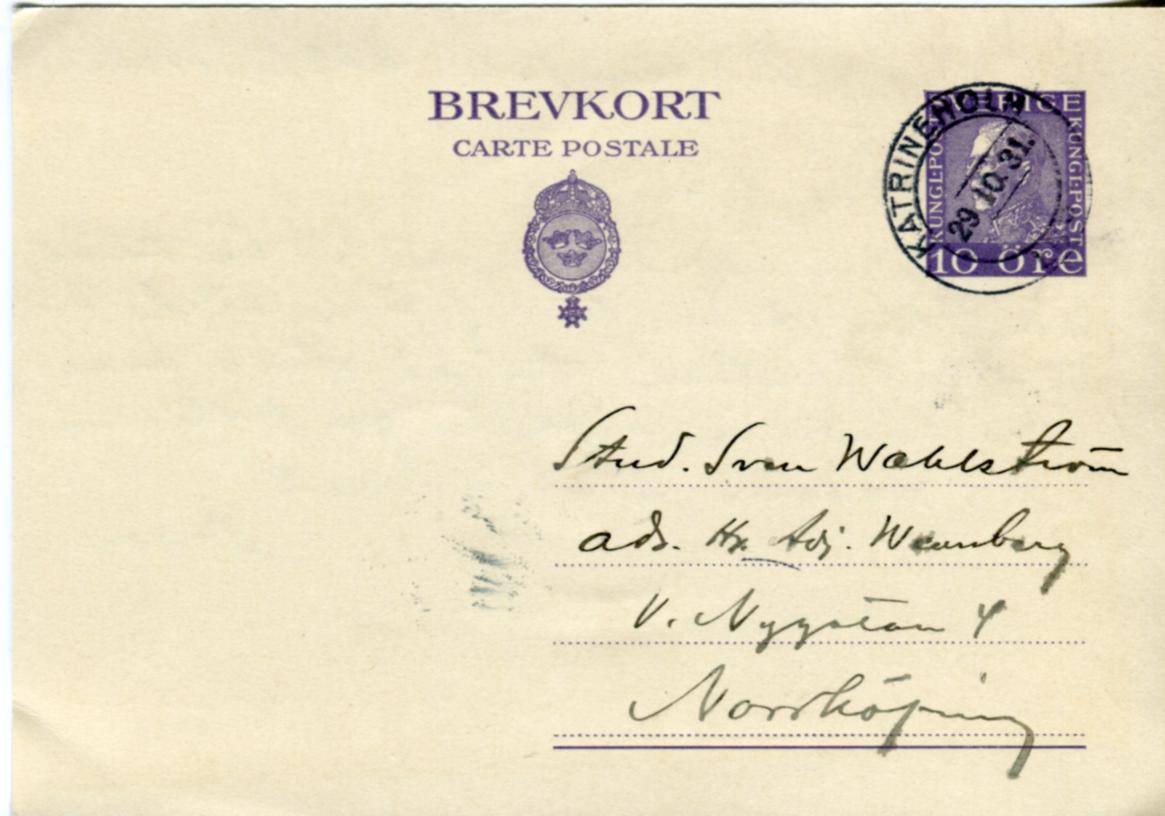 BREVKORT
CARTE POSTALE
SVERIGE
KUNGL·POST
KUNGL·POST
10 ÖRE
KATRINEHOLM
29.10.31.
Stud. Sven Wahlström
adr. Hr. Adj. Wennberg
V. Nygatan 4
Norrköping